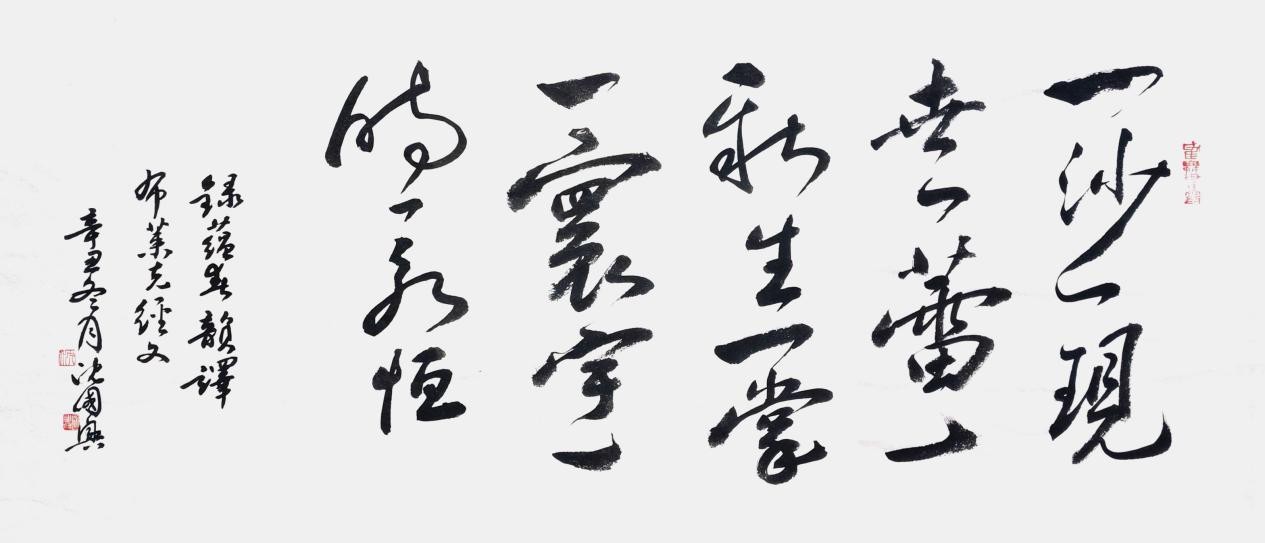 一沙一現
世一蕾一
新生一掌
一寰宇一
時一永恒
錄蘊春韻譯
布莱克經文
辛丑冬月沈國興